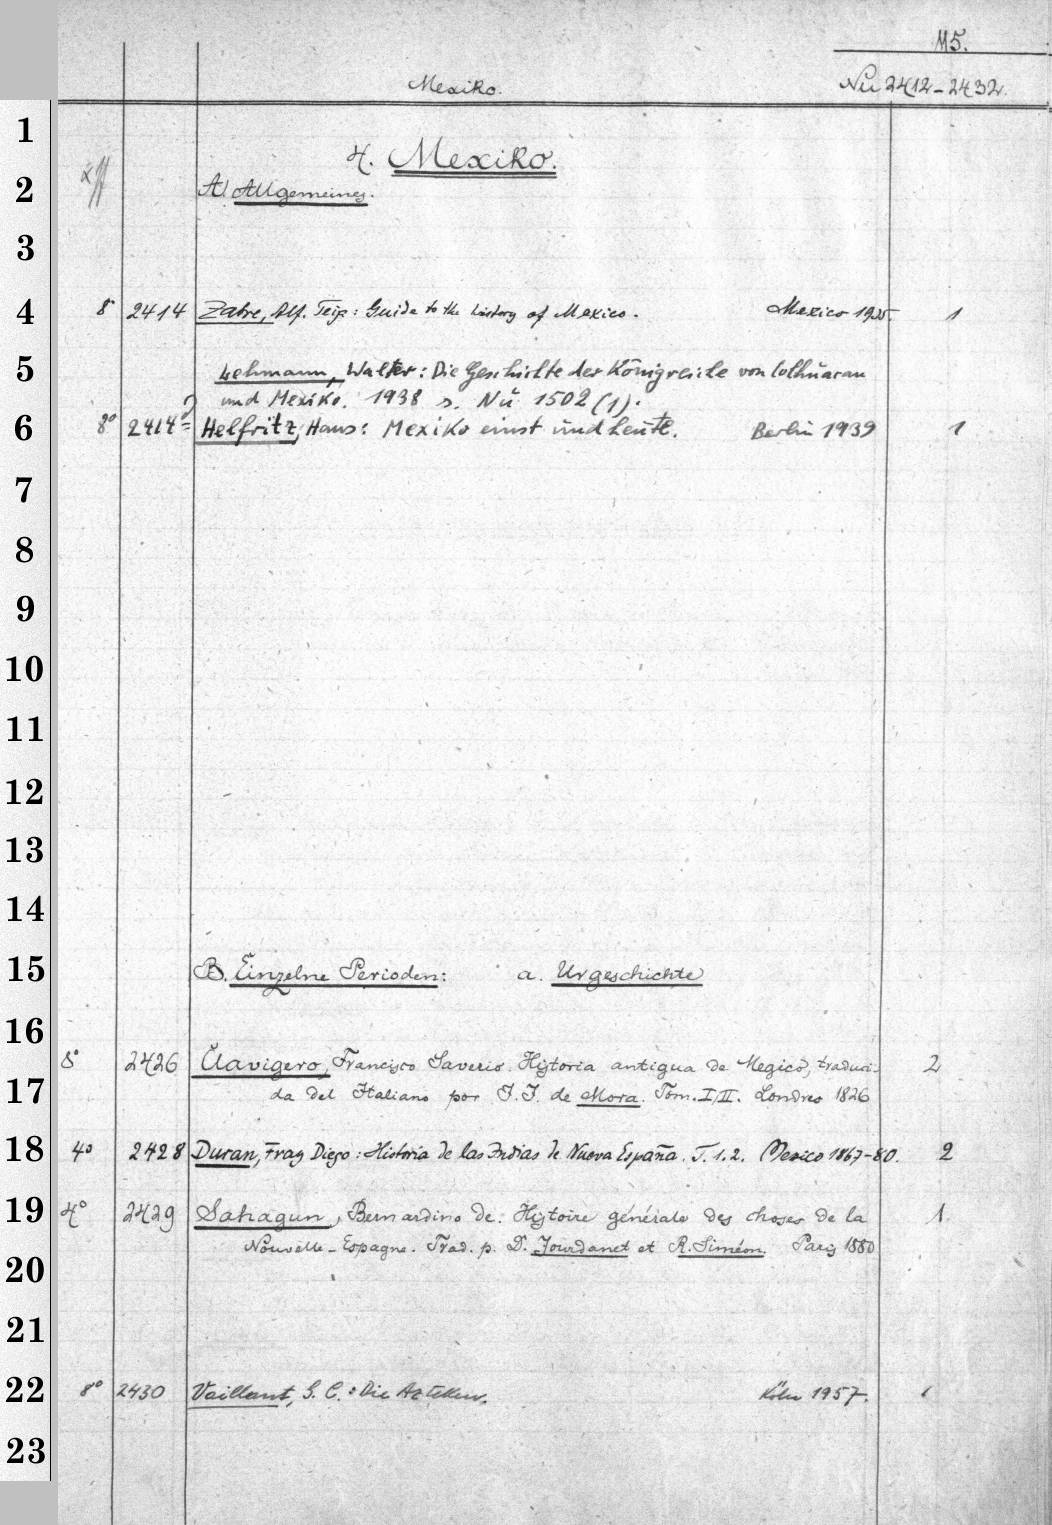 M5.
Mexiko. Nü 2412-2432.
1
4. Mexiko.
2 A) Allgemeines.
3
4 8° 2414 Zabre, Alf. Teix: Guide to the history of Mexico. Mexico 1935. 1
5 Lehmann, Walter: Die Geschichte der Königreiche von Colhuacan
und Mexiko. 1938 s. Nü 1502 (1).
6 8° 2414a Helfritz, Hans: Mexiko einst und heute. Berlin 1939 1
7
8
9
10
11
12
13
14
15 B. Einzelne Perioden: a. Urgeschichte
16
8° 2426 Clavigero, Francisco Saverio. Historia antigua de Megico, traduci-
2
17 da del Italiano por J. J. de Mora. Tom. I, II. Londres 1826
18 4° 2428 Duran, Fray Diego: Historia de las Indias de Nueva España. T. 1. 2. Mexico 1867-80. 2
19 4° 2429 Sahagun, Bernardino de: Histoire générale des choses de la 1
Nouvelle-Espagne. Trad. p. D. Jourdanet et R. Siméon. Paris 1880
20
21
22 8° 2430 Vaillant, G. C.: Die Azteken. Köln 1957. 1
23